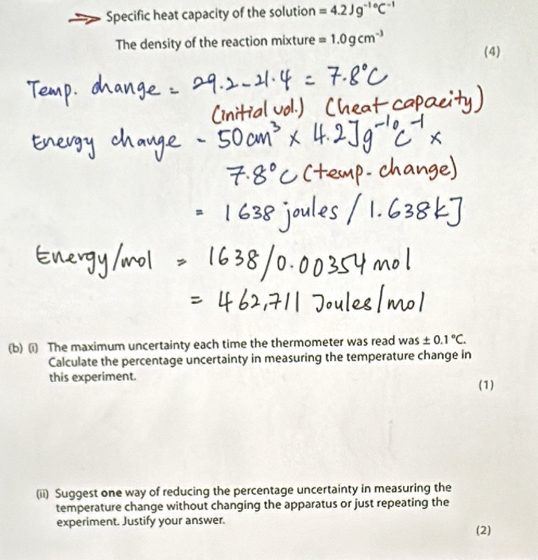 Specific heat capacity of the solution = 4.2 J g⁻¹ °C⁻¹
The density of the reaction mixture = 1.0 g cm⁻³
(4)
Temp. change = 29.2-21.4 = 7.8°C
(initial vol.) (heat capacity)
Energy change - 50cm³ x 4.2Jg⁻¹°C⁻¹ x
7.8°C (temp. change)
= 1638 joules / 1.638kJ
Energy/mol = 1638/0.00354 mol
= 462,711 Joules/mol
(b) (i) The maximum uncertainty each time the thermometer was read was ± 0.1 °C.
Calculate the percentage uncertainty in measuring the temperature change in
this experiment.
(1)
(ii) Suggest one way of reducing the percentage uncertainty in measuring the
temperature change without changing the apparatus or just repeating the
experiment. Justify your answer.
(2)